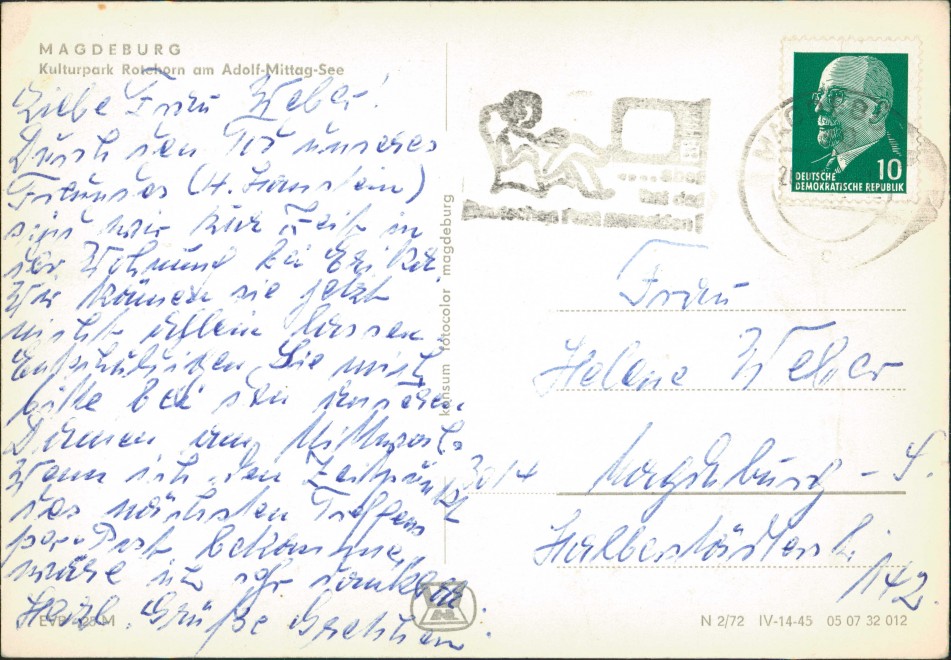 MAGDEBURG
Kulturpark Rotehorn am Adolf-Mittag-See
Liebe Frau Weber!
Durch den Tod unseres
Freundes (H. Hanstein)
sind wir zur Zeit in
der Wohnung bei Erika.
Wir können sie jetzt
nicht allein lassen.
Entschuldigen Sie mich
bitte bei den anderen
Damen am Mittwoch.
Wenn ich den Zeitpunkt
des nächsten Treffens
per Post bekomme,
wäre ich sehr dankbar.
Herzl. Grüße Gretchen
EVP
M
konsum fotocolor magdeburg
DEUTSCHE
DEMOKRATISCHE REPUBLIK
10
Frau
Helene Weber
3014 Magdeburg - S.
Halberstädterstr.
142
N 2/72 IV-14-45 05 07 32 012